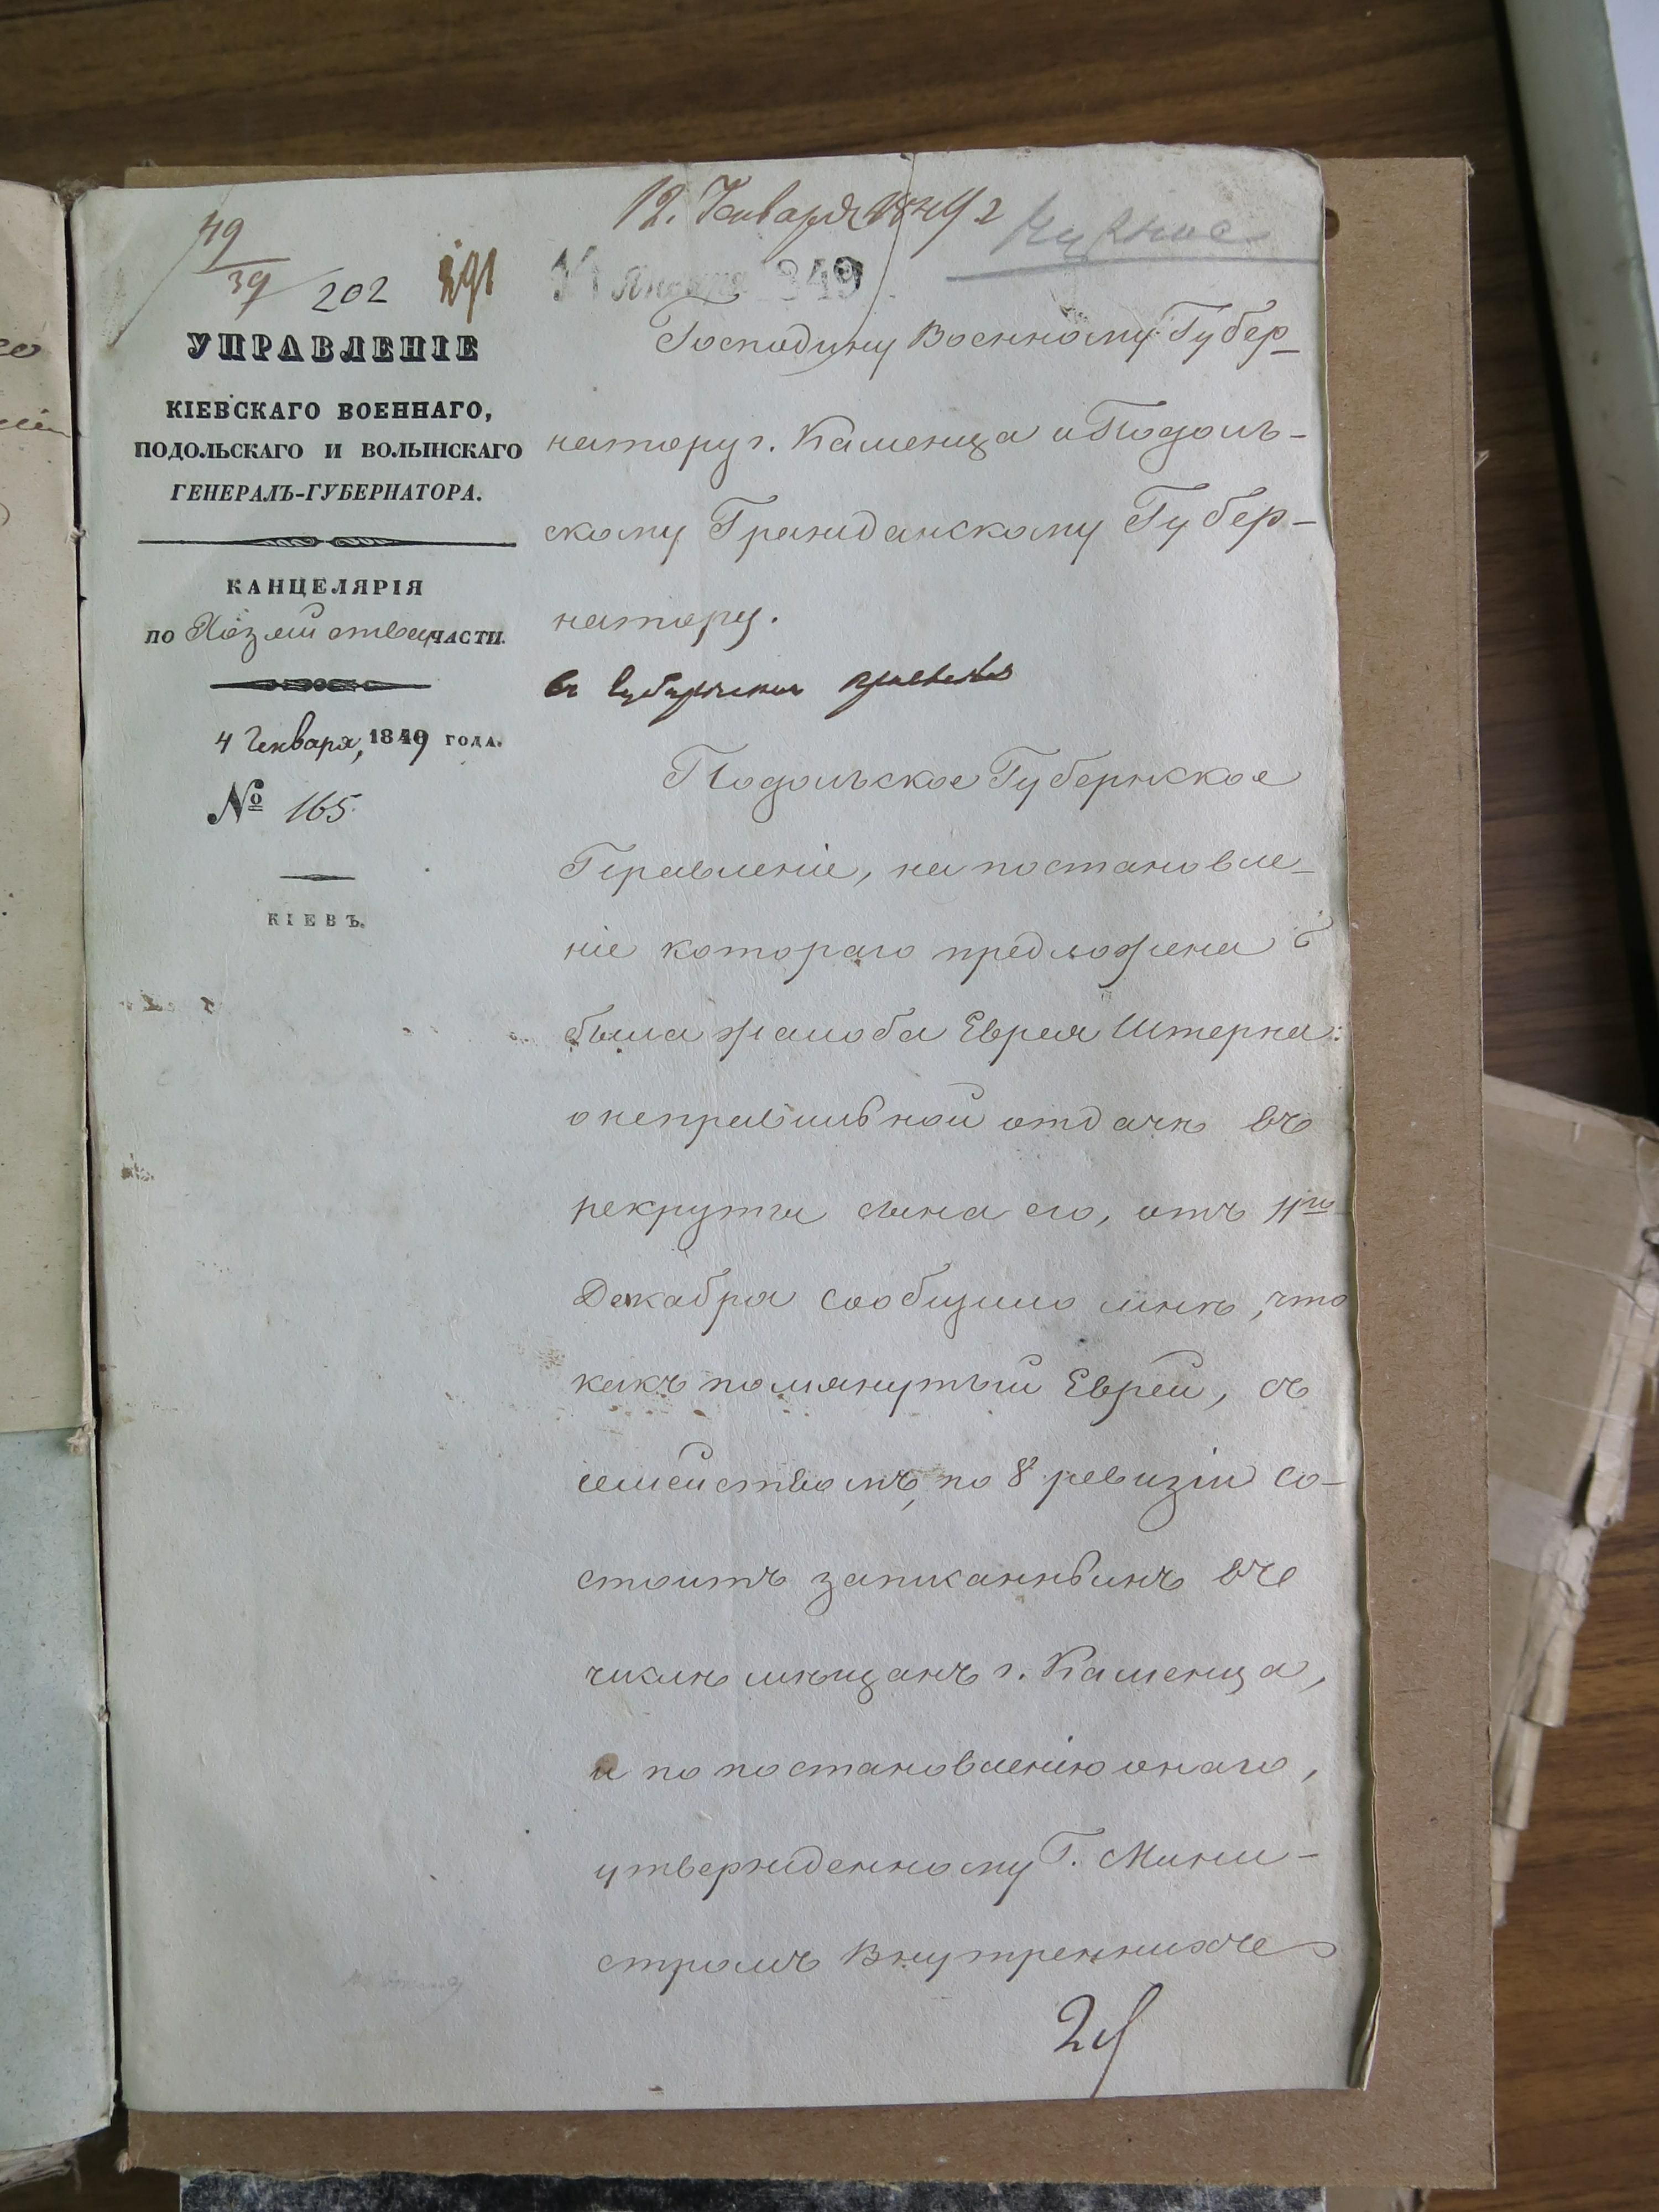 12. Января 1849 г
49
39
202
291
11 Января 1849
УПРАВЛЕНІЕ
КІЕВСКАГО ВОЕННАГО,
ПОДОЛЬСКАГО И ВОЛЫНСКАГО
ГЕНЕРАЛЪ-ГУБЕРНАТОРА.
КАНЦЕЛЯРІЯ
ПО Хозяйствен. ЧАСТИ.
4 Генваря, 1849 ГОДА.
№ 165.
КІЕВЪ.
Господину Военному Губер-
натору г. Каменца и Подоль-
скому Гражданскому Губер-
натору.
въ Губернское правленіе
Подольское Губернское
Правленіе, на постановле-
ніе котораго предложена
была жалоба Еврея Штерна:
о неправильной отдачѣ въ
рекруты сына его, отъ 11го
Декабря сообщило мнѣ, что
какъ помянутый Еврей, съ
семействомъ, по 8 ревизіи со-
стоитъ записаннымъ въ
числѣ мѣщанъ г. Каменца,
и по постановленію онаго,
утвержденному Г. Мини-
стромъ Внутреннихъ